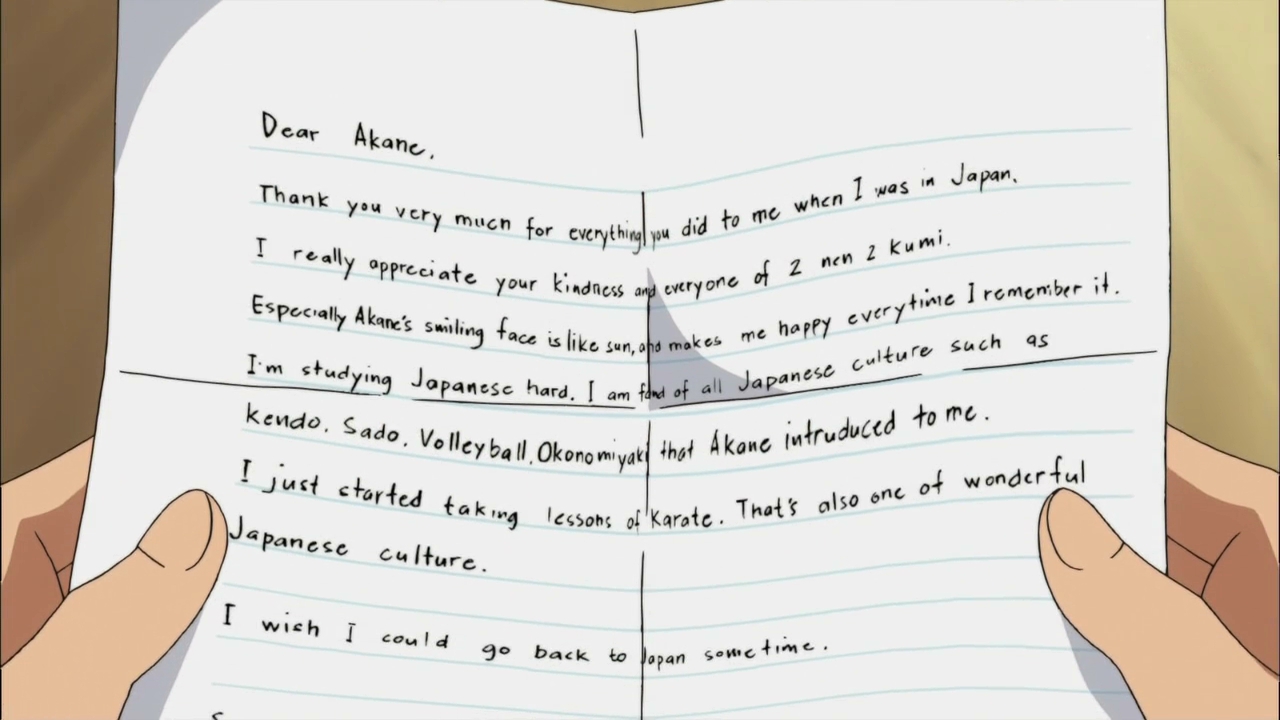 Dear Akane,
Thank you very much for everything you did to me when I was in Japan.
I really appreciate your kindness and everyone of 2 nen 2 kumi.
Especially Akane's smiling face is like sun, and makes me happy everytime I remember it.
I'm studying Japanese hard. I am fond of all Japanese culture such as
kendo. Sado. Volleyball. Okonomiyaki that Akane intruduced to me.
I just started taking lessons of Karate. That's also one of wonderful
Japanese culture.
I wish I could go back to Japan sometime.